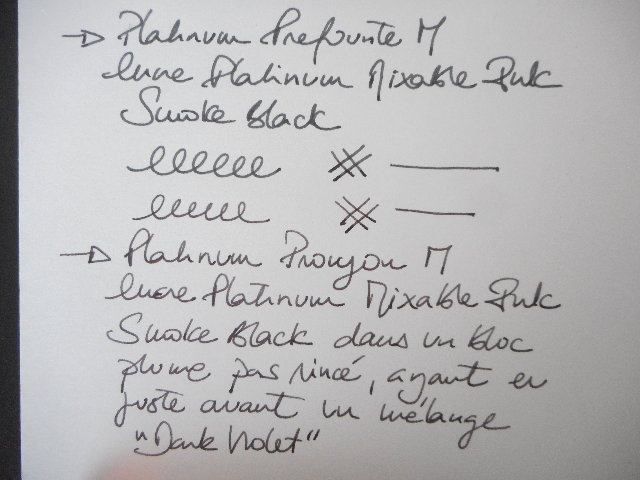 → Platinum Prefounte M
encre Platinum Mixable Ink
Smoke Black
→ Platinum Procyon M
encre Platinum Mixable Ink
Smoke Black dans un bloc
plume pas rincé, ayant eu
juste avant un mélange
"Dark Violet"